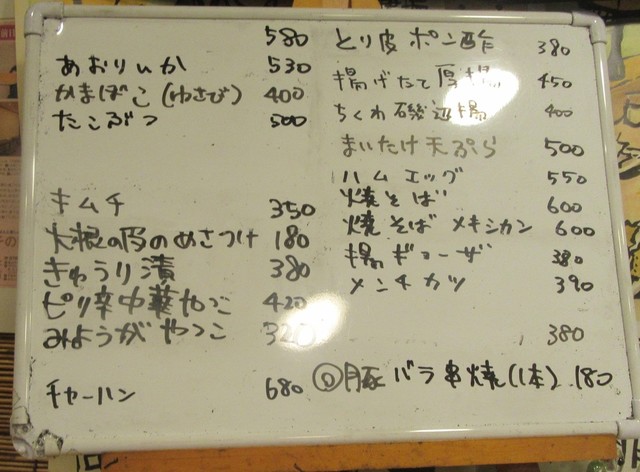 580
あおりいか 530
かまぼこ(わさび) 400
たこぶつ 500
キムチ 350
大根の皮のめさつけ 180
きゅうり漬 380
ピリ辛中華やっこ 420
みょうがやっこ 320
チャーハン 680
とり皮ポン酢 380
揚げたて厚揚 450
ちくわ磯辺揚 400
まいたけ天ぷら 500
ハムエッグ 550
焼そば 600
焼そばメキシカン 600
揚ギョーザ 380
メンチカツ 390
380
豚バラ串焼(1本) 180